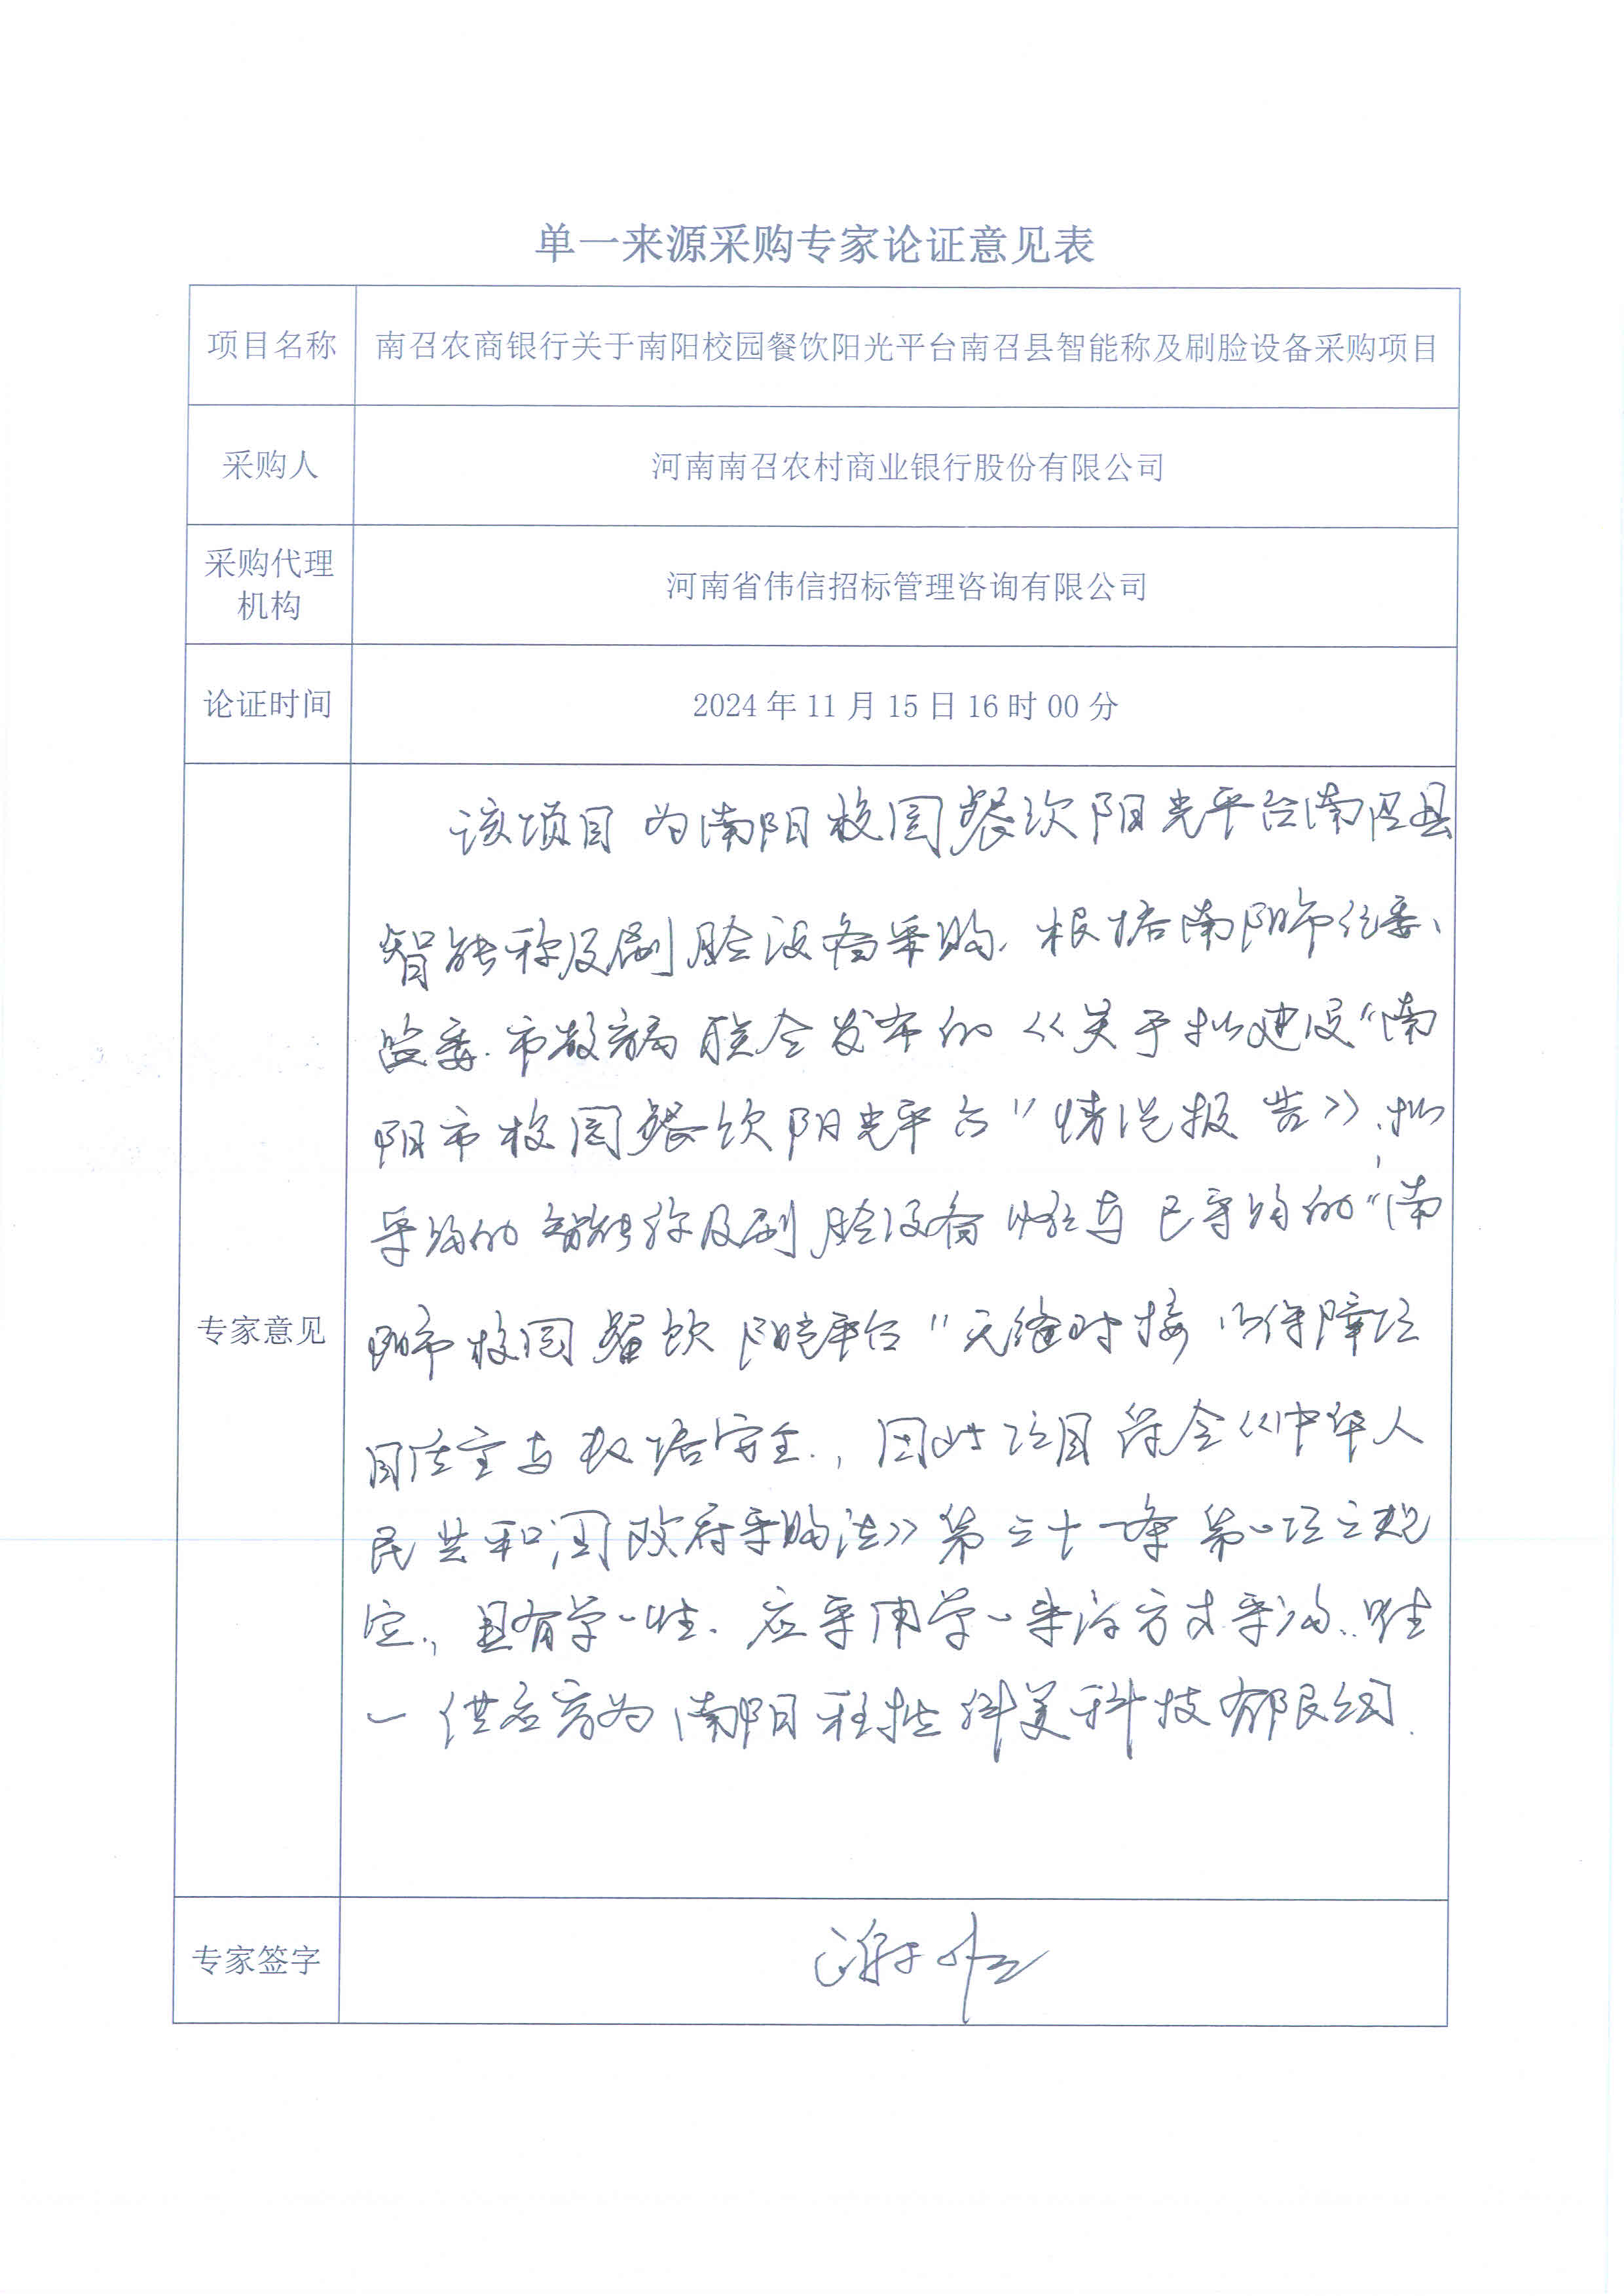 单一来源采购专家论证意见表
项目名称
南召农商银行关于南阳校园餐饮阳光平台南召县智能称及刷脸设备采购项目
采购人
河南南召农村商业银行股份有限公司
采购代理
机构
河南省伟信招标管理咨询有限公司
论证时间
2024年11月15日16时00分
专家意见
该项目为南阳校园餐饮阳光平台南召县
智能称及刷脸设备采购.根据南阳市纪委、
监委.市教育局联合发布的《关于拟建设“南
阳市校园餐饮阳光平台”情况报告》,拟
采购的智能称及刷脸设备必须与已采购的“南
阳市校园餐饮阳光平台”无缝对接以保障项
目质量与数据安全.,因此项目符合《中华人
民共和国政府采购法》第三十一条第一项之规
定,,具有单一性.应采用单一来源方式采购.唯
一供应商为南阳科美科技有限公司.
专家签字
谢